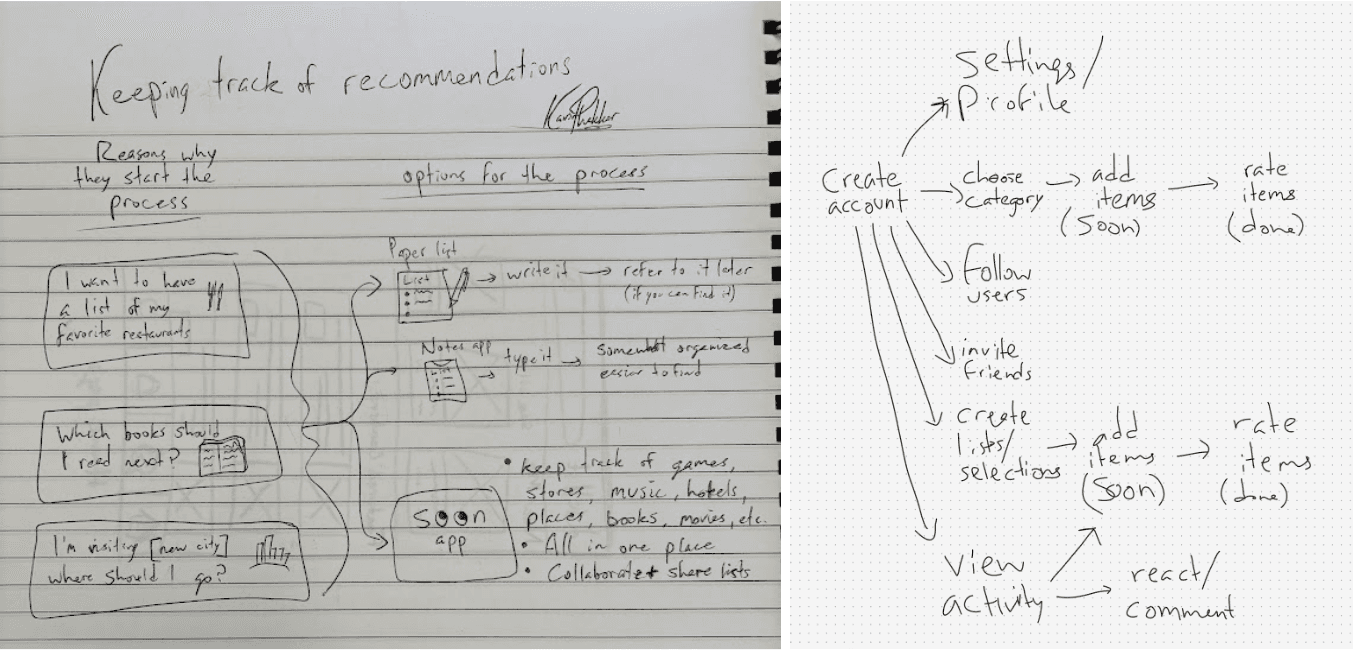 Keeping track of recommendations
Reasons why
they start the
process
options for the process
I want to have
a list of my
favorite restaurants
Which books should
I read next?
I'm visiting [new city]
where should I go?
Paper list
List
write it
refer to it later
(if you can find it)
Notes app
List
type it
somewhat organized
easier to find
soon
app
• keep track of games,
stores, music, hotels,
places, books, movies, etc.
• All in one place
• Collaborate + share lists
Settings/
Profile
Create
account
choose
category
add
items
(soon)
rate
items
(done)
follow
users
invite
friends
create
lists/
selections
add
items
(soon)
rate
items
(done)
view
activity
react/
comment